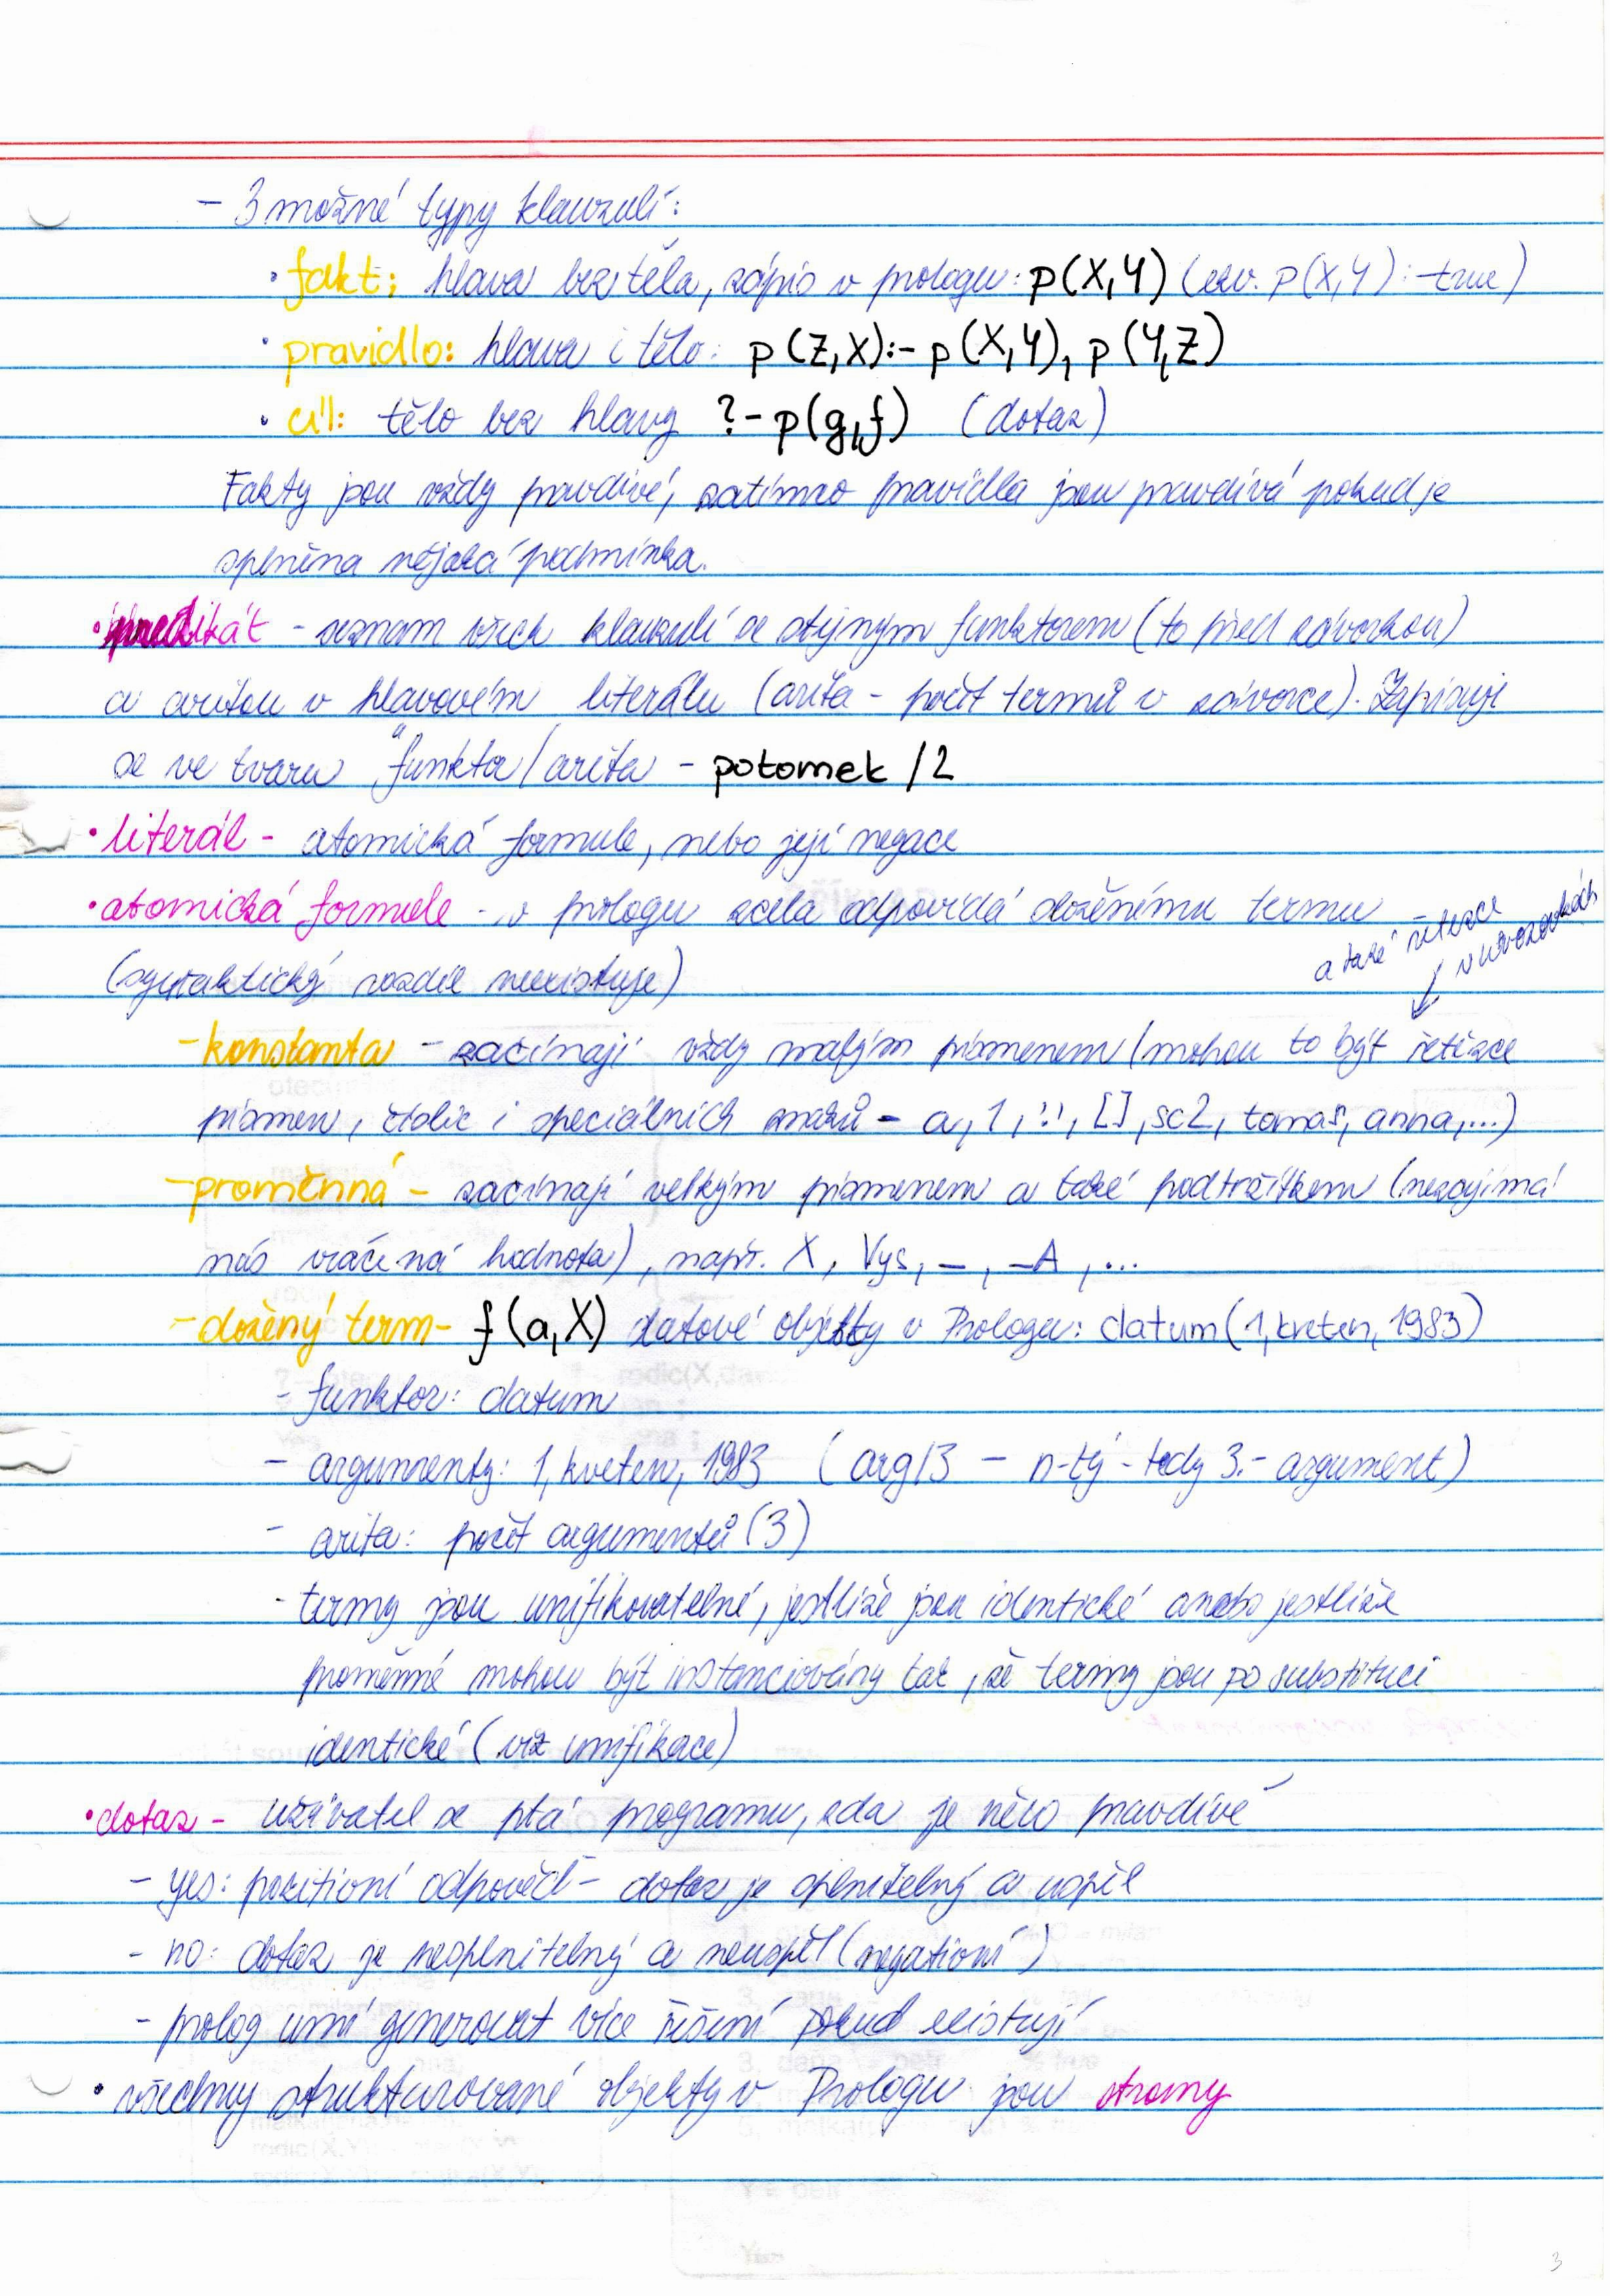 - 3 možné typy klauzulí:
• fakt: hlava bez těla, zápis v prologu: p(X,Y) (ekv. p(X,Y):-true)
• pravidlo: hlava i tělo: p(Z,X):- p(X,Y), p(Y,Z)
• cíl: tělo bez hlavy ?- p(g,f) (dotaz)
Fakty jsou vždy pravdivé, zatímco pravidla jsou pravdivá pokud je
splněna nějaká podmínka.
• predikát - seznam všech klauzulí se stejným funktorem (to před závorkou)
a aritou v hlavovém literálu (arita - počet termů v závorce). Zapisuje
se ve tvaru "funktor/arita - potomek /2
• literál - atomická formule, nebo její negace
• atomická formule - v prologu zcela odpovídá složenému termu
a také řetězce
v uvozovkách
(syntaktický rozdíl neexistuje)
- konstanta - začínají vždy malým písmenem (mohou to být řetězce
písmen, číslic i speciálních znaků - a, 1, ':', [], sc2, tomas, anna,...)
- proměnná - začínají velkým písmenem a také podtržítkem (nezajímá
nás vrácená hodnota), např. X, Vys, _, _A, ...
- složený term - f(a,X) datové objekty v Prologu: datum(1,kveten,1983)
- funktor: datum
- argumenty: 1, kveten, 1983 (arg/3 - n-tý - tedy 3.- argument)
- arita: počet argumentů (3)
- termy jsou unifikovatelné, jestliže jsou identické anebo jestliže
proměnné mohou být instanciovány tak, že termy jsou po substituci
identické (viz unifikace)
• dotaz - uživatel se ptá programu, zda je něco pravdivé
- yes: pozitivní odpověď - dotaz je splnitelný a uspěl
- no: dotaz je nesplnitelný a neuspěl (negativní)
- prolog umí generovat více řešení pokud existují
• všechny strukturované objekty v Prologu jsou stromy
3